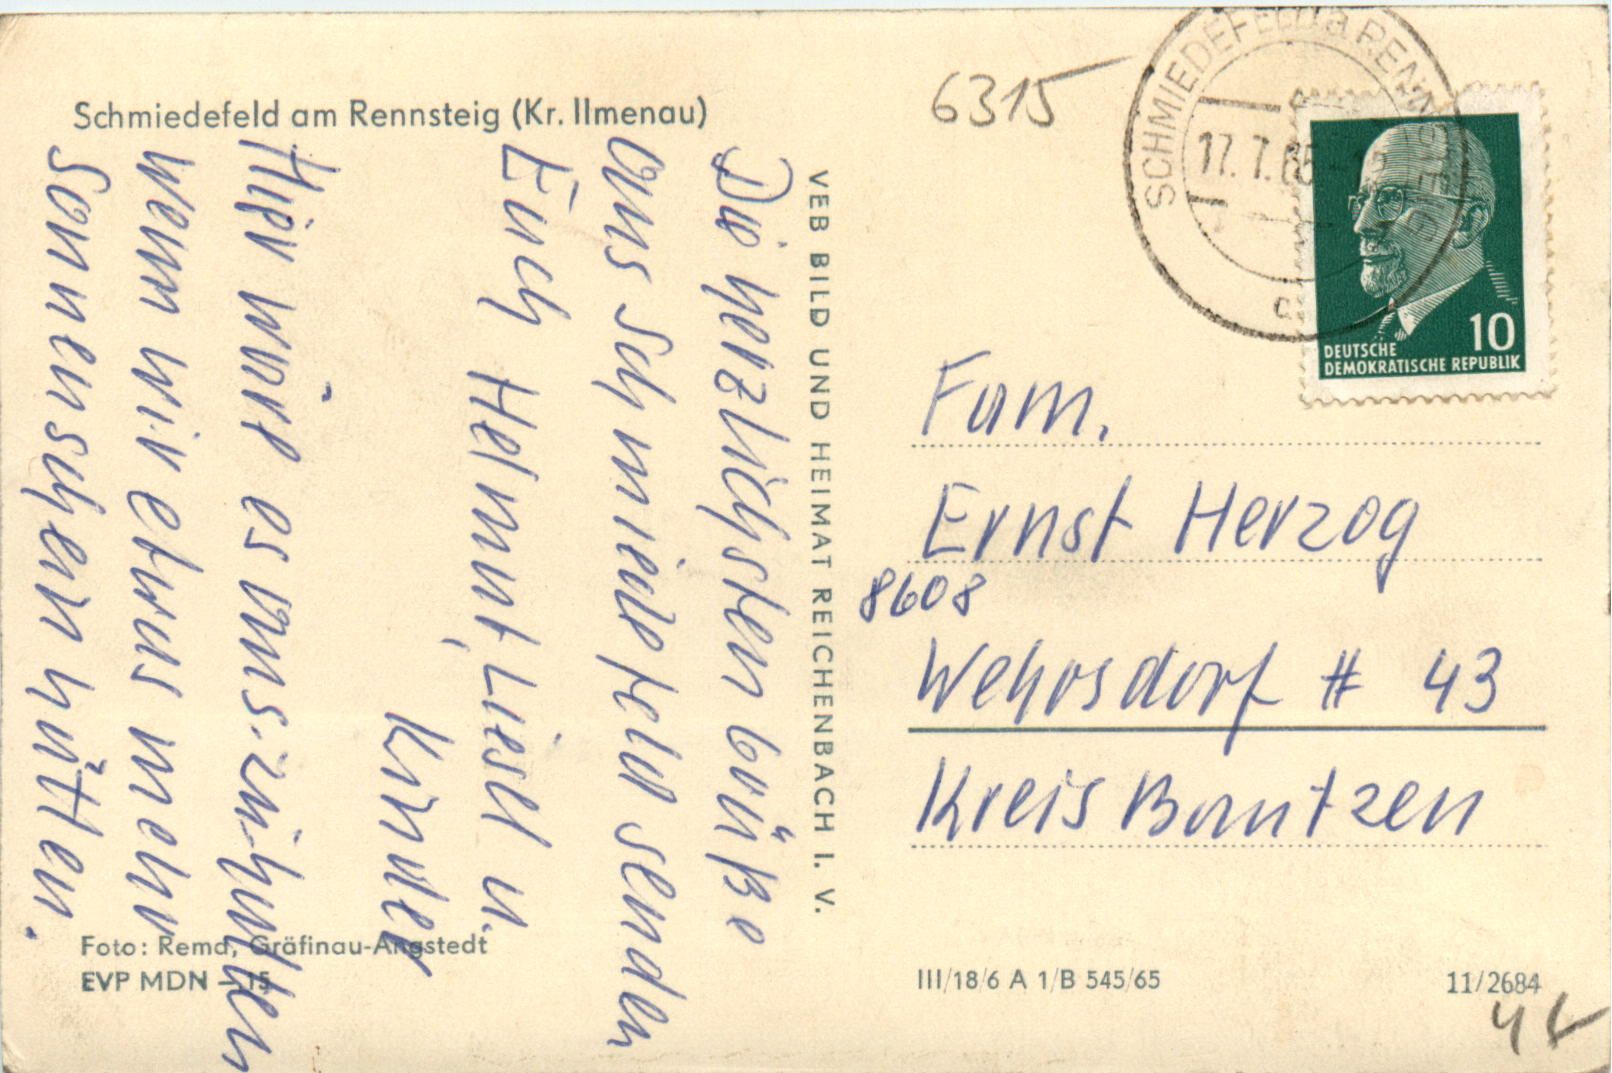 Schmiedefeld am Rennsteig (Kr. Ilmenau)
Die herzlichsten Grüße
aus Schmiedefeld senden
Euch Helmut, Liesl u.
Kinder
Hier wäre es auszuhalten
wenn wir etwas mehr
Sonnenschein hätten.
Foto: Remd, Gräfinau-Angstedt
EVP MDN –.15
VEB BILD UND HEIMAT REICHENBACH I. V.
6315
SCHMIEDEFELD a RENNSTEIG
17.7.65
DEUTSCHE
DEMOKRATISCHE REPUBLIK
10
Fam.
Ernst Herzog
8608
Wehrsdorf # 43
Kreis Bautzen
III/18/6 A 1/B 545/65
11/2684